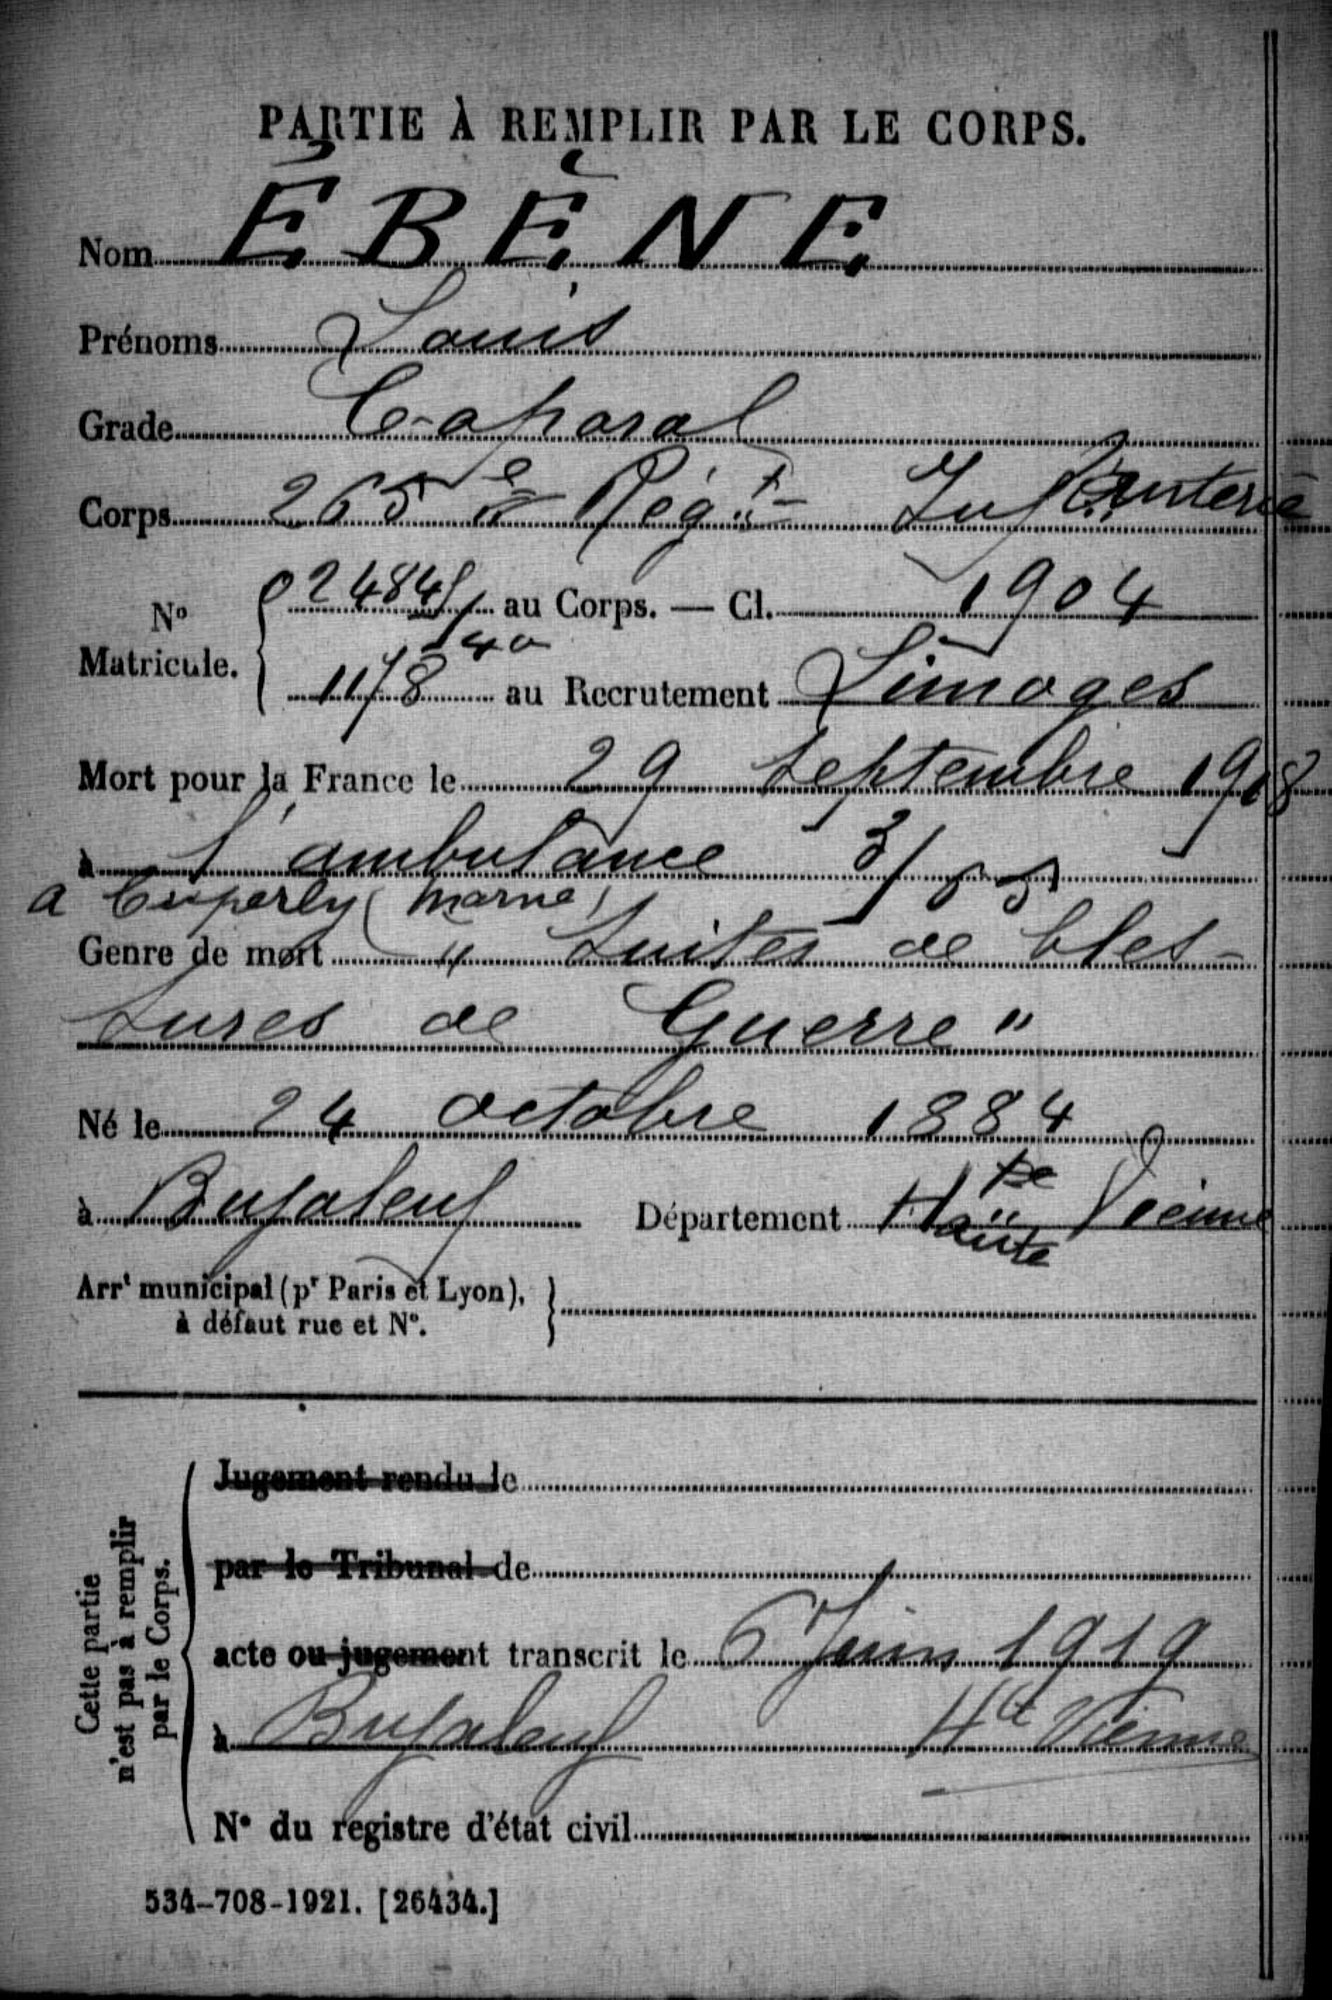 PARTIE À REMPLIR PAR LE CORPS.
Nom ÉBÈNE
Prénoms Louis
Grade Caporal
Corps 265e Régt Infanterie
No Matricule. 02484 au Corps. — Cl. 1904
1178 au Recrutement Limoges
Mort pour la France le 29 Septembre 1918
à l'ambulance 3/55
a Cuperly (Marne)
Genre de mort " Suites de bles-
sures de Guerre "
Né le 24 octobre 1884
à Bujaleuf Département Hte Vienne
Haute
Arrt municipal (pr Paris et Lyon),
à défaut rue et No.
Cette partie
n'est pas à remplir
par le Corps.
Jugement rendu le
par le Tribunal de
acte ou jugement transcrit le 6 Juin 1919
à Bujaleuf Hte Vienne
No du registre d'état civil
534-708-1921. [26434.]